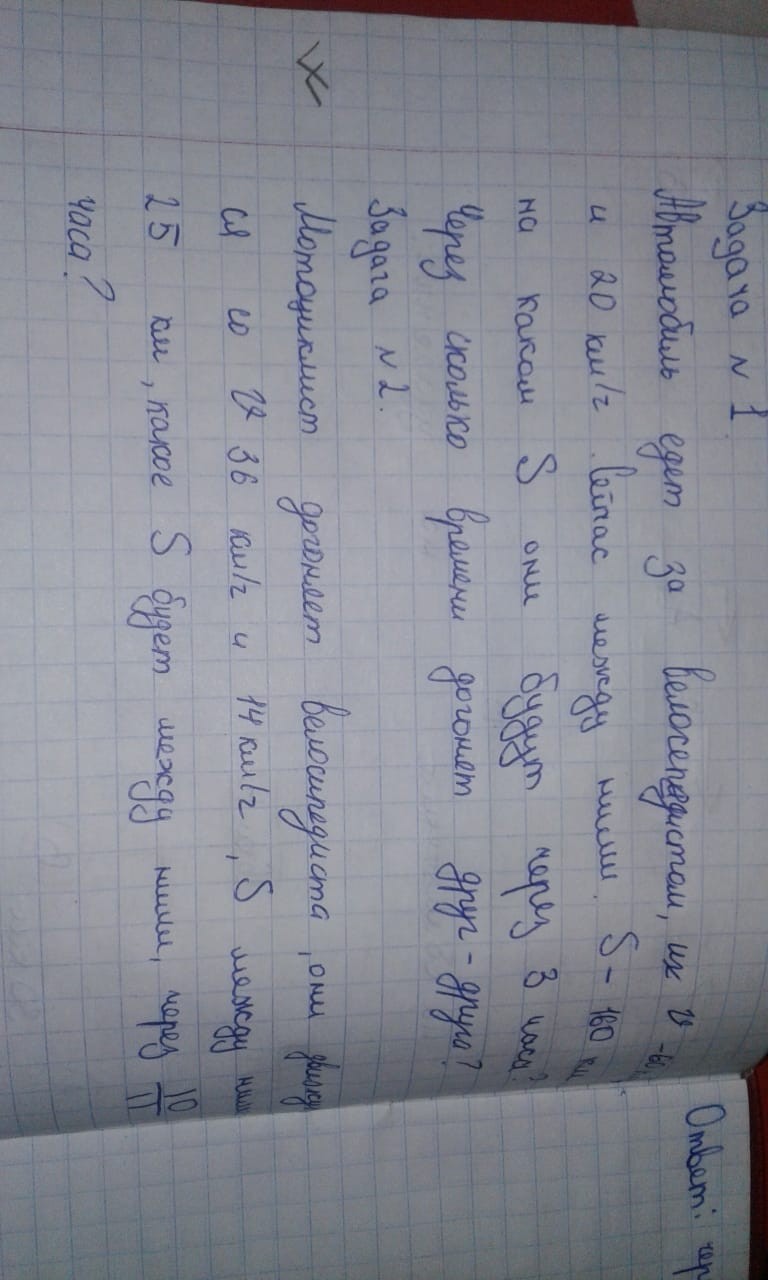 Задача N 1
Автомобиль едет за велосепедистом, их v -60
и 20 км/г. Сейчас между ними. S - 160 км,
на каком S они будут через 3 часа?
Через сколько времени догонят друг - друга?
Задача N 2.
Мотоциклист догоняет велосипедиста, они движу
ся со v 36 км/г и 14 км/г, S между ним
25 км, какое S будет между ними, через 10/11
часа?
Ответ: чер